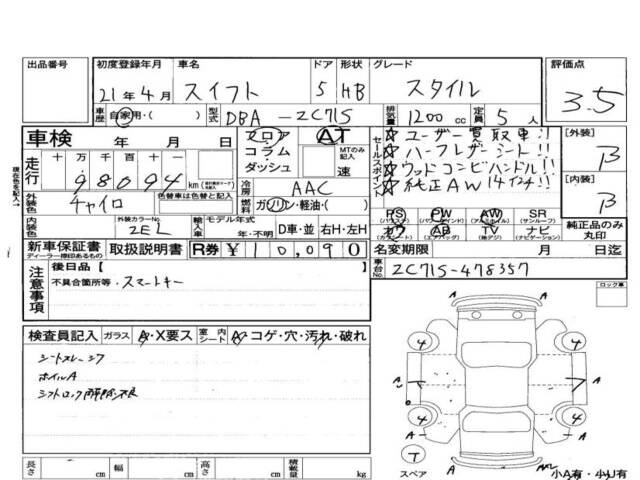 出品番号
初度登録年月 車名 ドア 形状 グレード 評価点
21年4月 スイフト 5 HB スタイル 3.5
車歴 自家用・( ) 型式 DBA-ZC71S 排気量 1200cc 定員 5人
車検 年 月 日
フロア AT
コラム MTのみ記入
ダッシュ 速
走行 十万千百十一
98094 km
冷房 AAC
燃料 ガソリン・軽油・( )
外装色 チャイロ 色替車は色替と記入
内装色 外装カラーNo. ZEL
輸入車 モデル年式 年・不明 D車・並 右H・左H
セールスポイント
☆ユーザー買取車!!
☆ハーフレザーシート!!
☆ウッドコンビハンドル!!
☆純正AW14インチ!!
PS PW AW SR
(パワステ) (パワーウィンドウ) (アルミホイル) (サンルーフ)
カワ AB TV ナビ
(エアバッグ) (地デジ) (ナビゲーション)
[外装] B
[内装] B
純正品のみ丸印
現在色を記入
新車保証書 取扱説明書 R券 ¥10,090
ディーラー捺印あるもの
名変期限 月 日迄
車台No. ZC71S-478357
注意事項
後日品【
不具合箇所等・スマートキー
ロック車
検査員記入 ガラス A・X要ス 室内シート A・コゲ・穴・汚れ・破れ
シートスレ・シワ
ホイルA
シフトロック解除不良
A
4 4
A A
4 4
A
T
スペア
小A有・小U有
長さ cm 幅 cm 高さ cm 積載量 kg